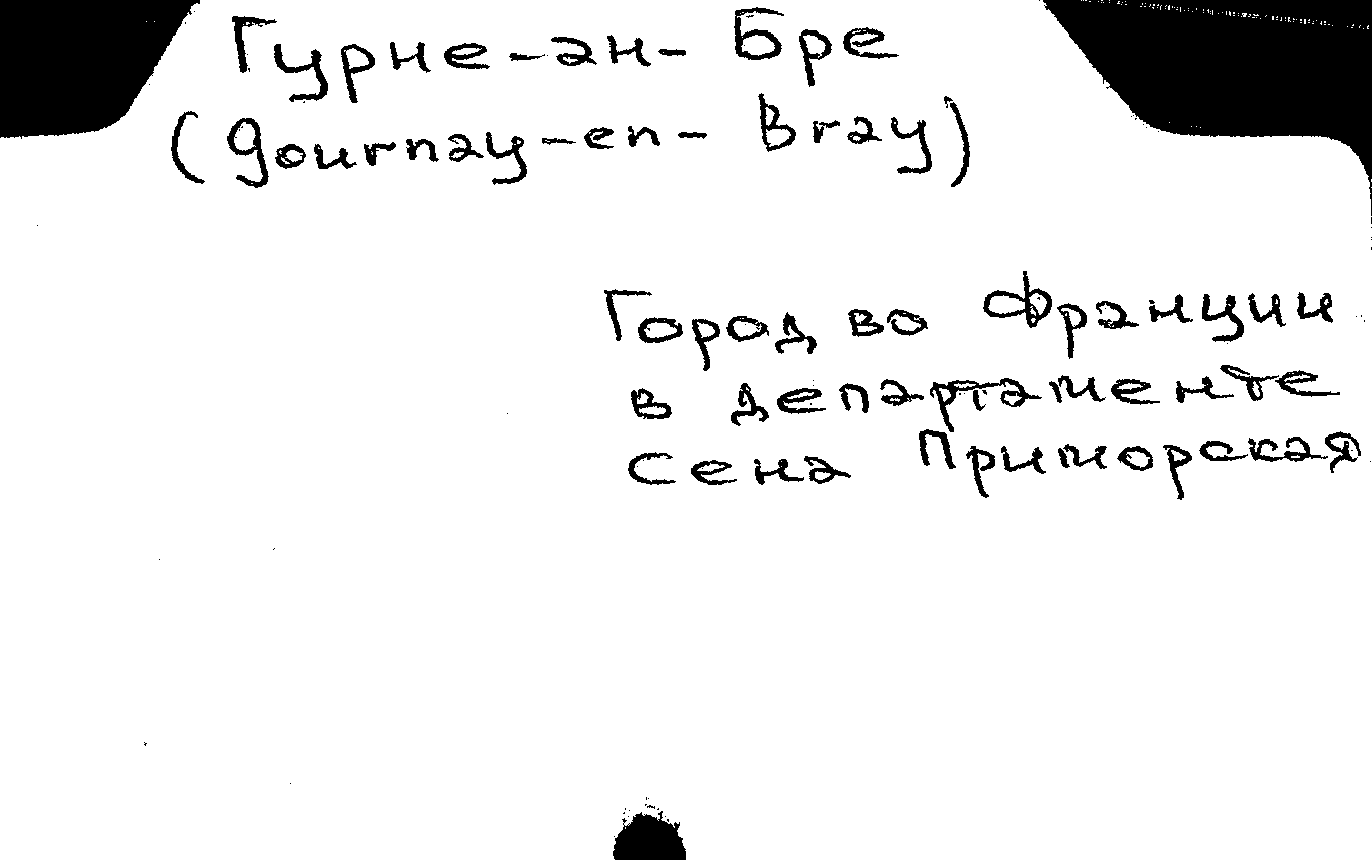 Гурне-ан-Бре
(Gournay-en-Bray)
Город во Франции
в департаменте
Сена Приморская